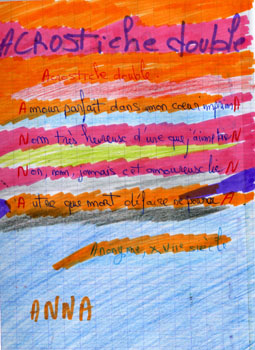 ACROSTICHE double
Acrostiche double
Amour parfait dans mon coeur imprimA
Nom très heureuse d'une que j'aime bieN
Non, non, jamais cet amoureux lieN
Autre que mort défaire ne pourrA
Anonyme, siècle
ANNA